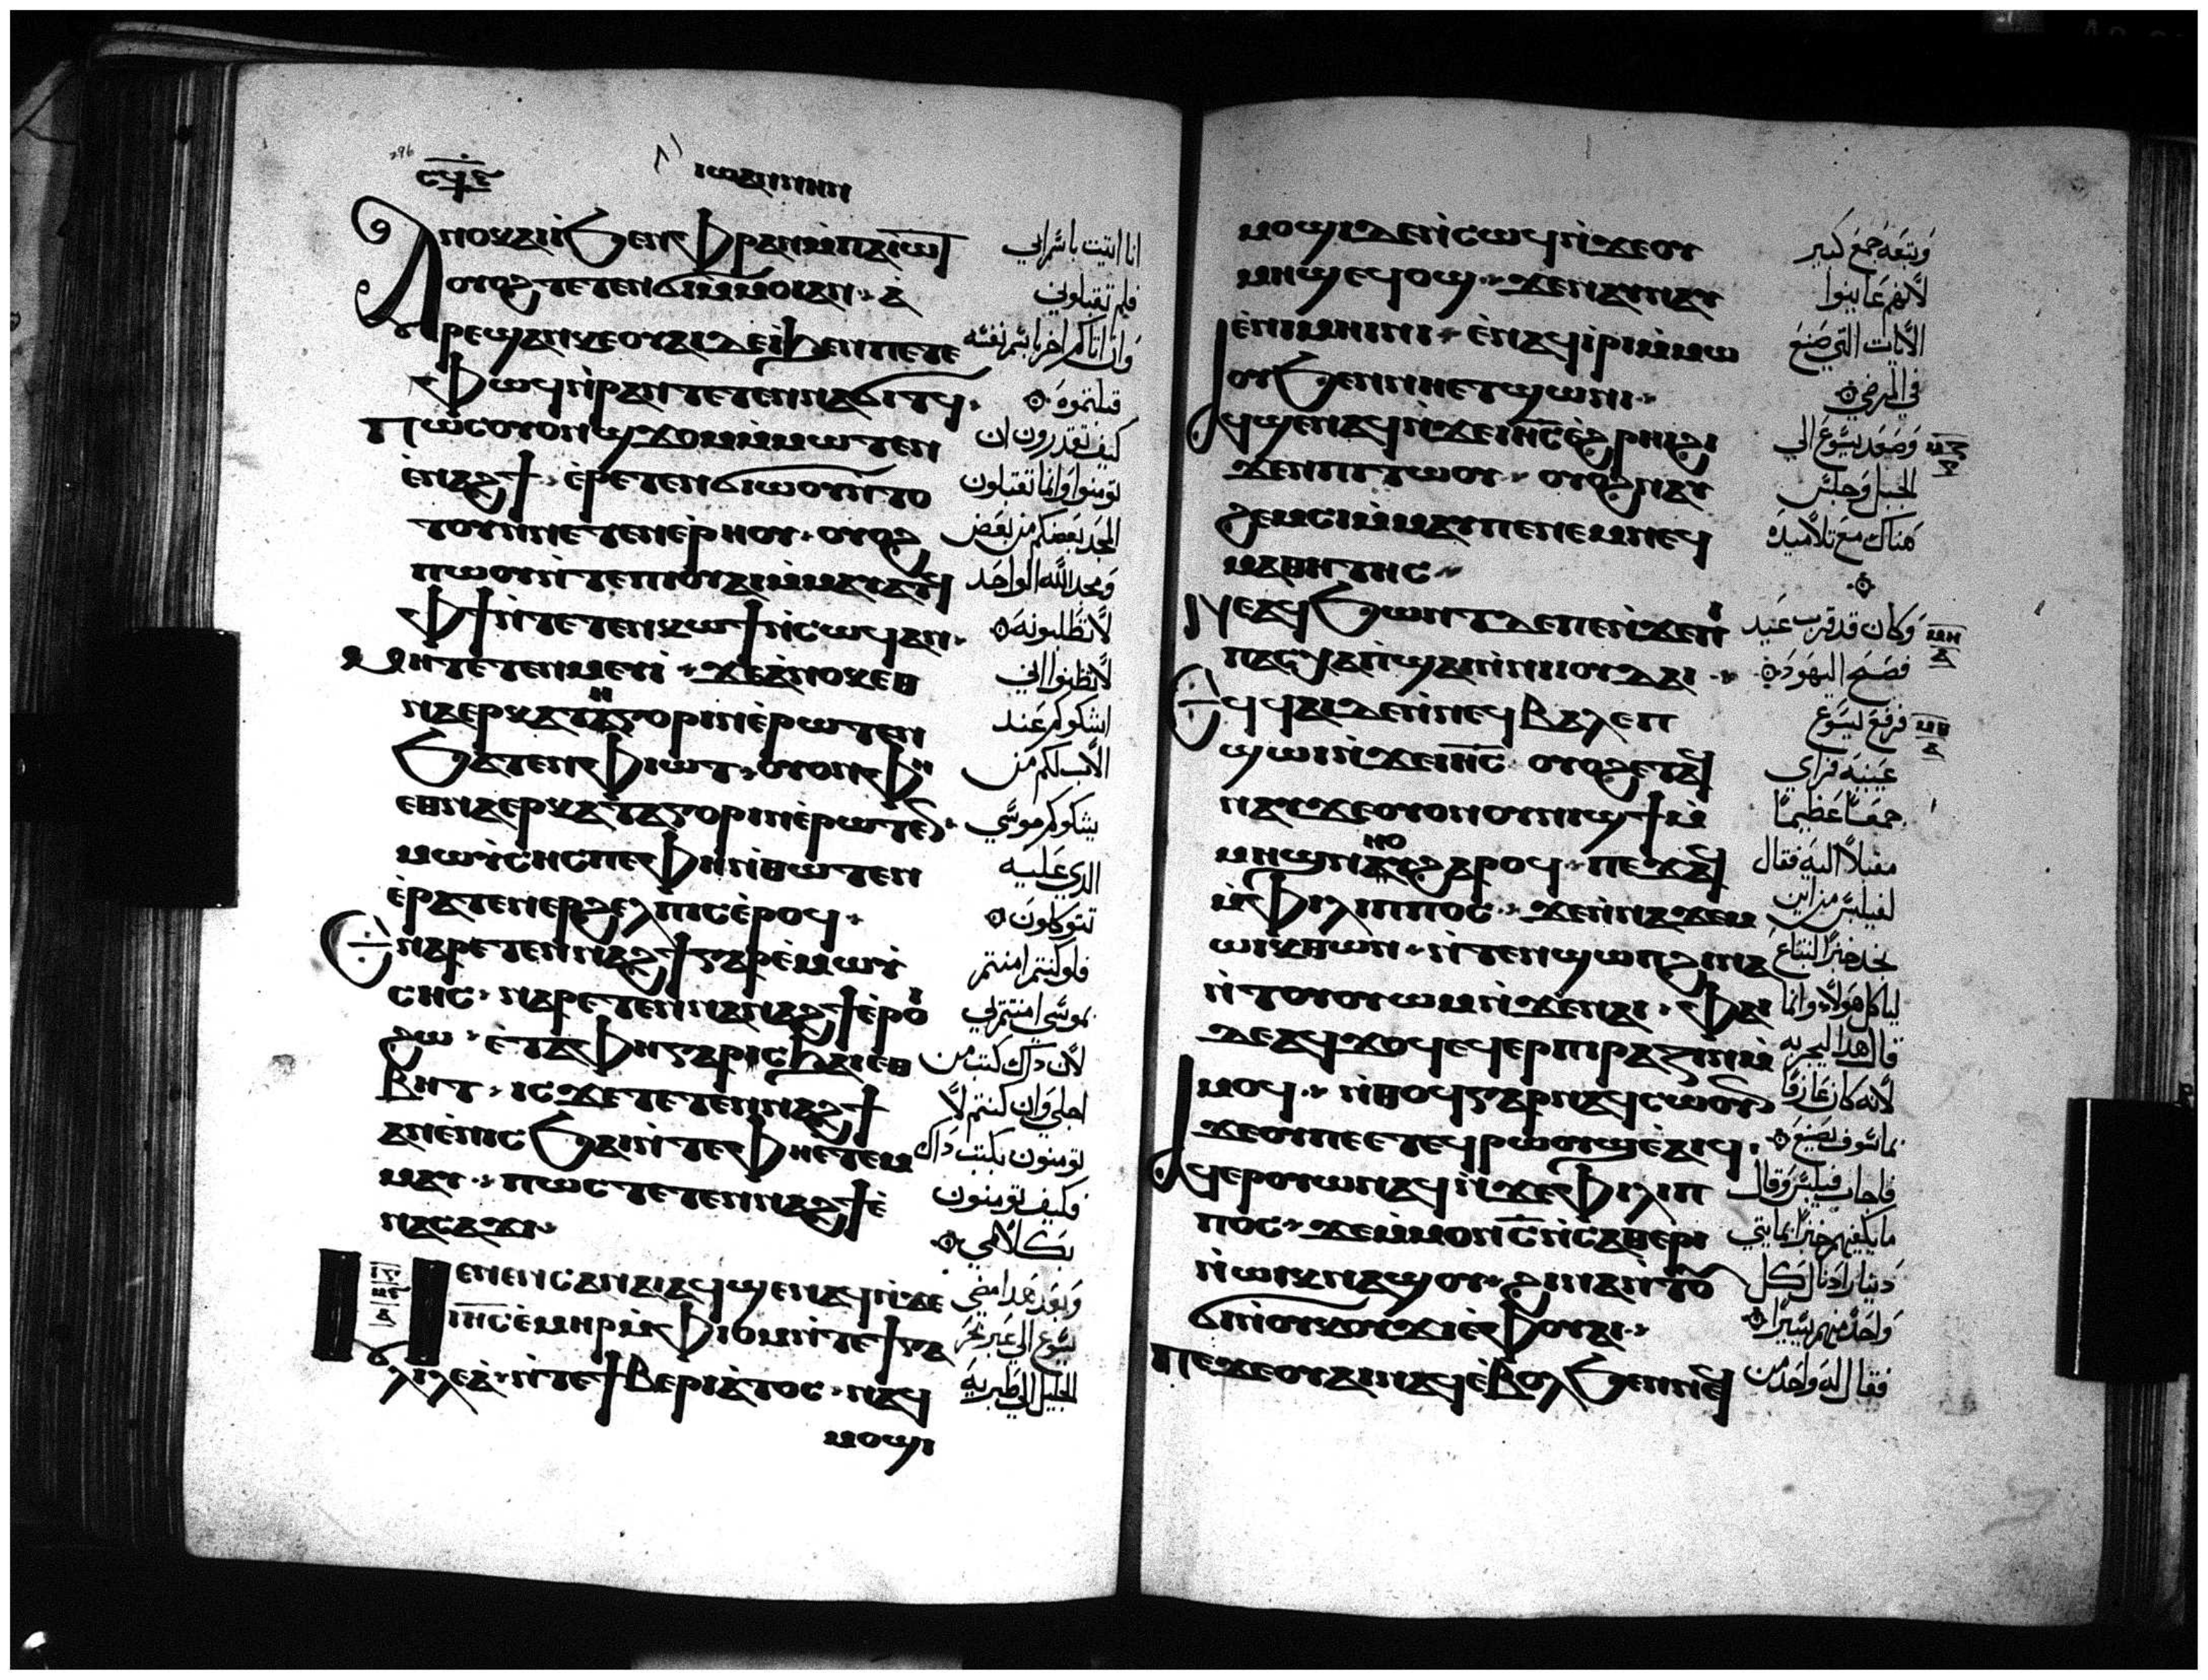 296
ⲥϥⲋ
ⲓⲱⲁⲛⲛⲏⲛ
ⲁⲛⲟⲕⲁⲓⲓ̀ϧⲉⲛⲫⲣⲁⲛⲙ̀ⲡⲁⲓⲱⲧ
ⲟⲩⲟϩⲧⲉⲧⲉⲛϭⲓⲙ̀ⲙⲟⲓⲁⲛ ⲁ
ⲣⲉϣⲁⲛⲕⲉⲟⲩⲁⲓⲇⲉⲓ̀ϧⲉⲛⲡⲉⲧⲉ
ⲫⲱϥⲛ̀ⲣⲁⲛⲧⲉⲧⲉⲛⲛⲁϭⲓⲧϥ
ⲡⲱⲥⲟⲩⲟⲛϣϫⲟⲙⲙ̀ⲙⲱⲧⲉⲛ
ⲉ̀ⲛⲁϩϯ ⲉⲣⲉⲧⲉⲛϭⲓⲱⲟⲩⲛ̀ⲧⲟ
ⲧⲟⲩⲛⲛⲉⲧⲉⲛⲉⲣⲏⲟⲩ ⲟⲩⲟϩ
ⲡⲱⲟⲩⲛ̀ⲧⲉⲡⲓⲟⲩⲁⲓⲙ̀ⲙⲁⲩⲁⲧϥ
ⲫϯⲛ̀ⲧⲉⲧⲉⲛⲕⲱϯⲛ̀ⲥⲱϥⲁⲛ
ⲙⲏⲧⲉⲧⲉⲛⲙⲉⲩⲓ̀ ϫⲉⲁ̀ⲛⲟⲕⲉⲑ
ⲛⲁⲉⲣⲕⲁⲧⲏⲅⲟⲣⲓⲛⲉ̀ⲣⲱⲧⲉⲛ
ϧⲁⲧⲉⲛⲫⲓⲱⲧ ⲟⲩⲟⲛⲫⲏ
ⲉⲑⲛⲁⲉⲣⲕⲁⲧⲁⲅⲟⲣⲓⲛⲉ̀ⲣⲱⲧⲉⲛ
ⲙⲱⲩ̀ⲥⲏⲥⲡⲉⲫⲏⲛ̀ⲑⲱⲧⲉⲛ
ⲉ̀ⲣⲁⲧⲉⲛⲉⲣϩⲉⲗⲡⲓⲥⲉ̀ⲣⲟϥ
ⲉⲛⲁⲣⲉⲧⲉⲛⲛⲁϩϯⲅⲁⲣⲉ̀ⲙⲱⲩ̀
ⲥⲏⲥ ⲛⲁⲣⲉⲧⲉⲛⲛⲁⲛⲁϩϯⲉ̀ⲣⲟⲓ
ϩⲱ ⲉ̀ⲧⲁⲫⲏⲅⲁⲣⲓⲥϧⲁⲓⲉⲑ
ⲃⲏⲧ ⲓⲥϫⲉⲧⲉⲧⲉⲛⲛⲁϩϯ
ⲁⲛⲉ̀ⲛⲓⲥϧⲁⲓⲛ̀ⲧⲉⲫⲏⲉ̀ⲧⲉⲙ
ⲙⲁⲩ ⲡⲱⲥⲧⲉⲧⲉⲛⲛⲁϩϯⲉ̀
ⲛⲁⲥⲁϫⲓ
ⲙⲉⲛⲉⲛⲥⲁⲛⲁⲓⲁϥϣⲉⲛⲁϥⲛ̀ϫⲉ
ⲓⲏⲥⲉ̀ⲙⲏⲣⲙ̀ⲫⲓⲟⲙⲛ̀ⲧⲉϯⲅⲁ
ⲗⲓⲗⲉⲁ̀ ⲛ̀ⲧⲉϯⲃⲉⲣⲓⲁⲧⲟⲥ ⲛⲁϥ
ⲙⲟϣⲓ
انا اتيت باسم ابي
فلم تقبلوني
وان اتاكم اخر باسم نفسه
قبلتموه
كيف تقدرون ان
تومنوا وانما تقبلون
المجد بعضكم من بعض
ومجد الله الواحد
لا تطلبونه
لا تظنوا اني
اشكوكم عند
الاب لكم من
يشكوكم موسى
الذي عليه
تتوكلون
فلو كنتم امنتم
بموسى امنتم بي
لان داك كتب من
اجلي وان كنتم لا
تومنون بكتب داك
فكيف تومنون
بكلامي
وبعد هدا مضي
يسوع الي عبر بحر
الجليل الي طبرية
ⲙⲟϣⲓⲇⲉⲛ̀ⲥⲱϥⲛ̀ϫⲉⲟⲩ
ⲙⲏϣⲉϥⲟϣ ϫⲉⲛⲁⲩⲛⲁⲩ
ⲉ̀ⲛⲓⲙⲏⲓⲛⲓ ⲉ̀ⲛⲁϥⲓ̀ⲣⲓⲙ̀ⲙⲱ
ⲟⲩϧⲉⲛⲛⲏⲉⲧϣⲱⲛⲓ
ⲁϥϣⲉⲛⲁϥⲛ̀ϫⲉⲓⲏⲥⲉ̀ϩⲣⲏⲓϩⲓ
ϫⲉⲛⲡⲓⲧⲱⲟⲩ ⲟⲩⲟϩⲛⲁϥ
ϩⲉⲙⲥⲓⲙ̀ⲙⲁⲩⲡⲉⲛⲉⲙⲛⲉϥ
ⲙⲁⲑⲏⲧⲏⲥ
ⲛⲉⲁϥϧⲱⲛⲧⲇⲉⲡⲉⲛ̀ϫⲉⲡⲓ
ⲡⲁⲥⲭⲁⲡ̀ϣⲁⲓⲛ̀ⲛⲓⲟⲩⲇⲁⲓ
ⲉⲧⲁϥϥⲁⲓⲇⲉⲛ̀ⲛⲉϥⲃⲁⲗⲉⲡ
ϣⲱⲓⲛ̀ϫⲉⲓⲏⲥ ⲟⲩⲟϩⲉⲧⲁϥ
ⲛⲁⲩϫⲉⲟⲩⲟⲛⲟⲩⲛⲓϣϯⲙ̀
ⲙⲏϣⲛⲏⲟⲩϩⲁⲣⲟϥ ⲡⲉϫⲁϥ
ⲙ̀ⲫⲓⲗⲓⲡⲡⲟⲥ ϫⲉⲁⲛⲛⲁϫⲉⲙ
ⲱⲓⲕⲑⲱⲛ ⲛ̀ⲧⲉⲛϣⲱⲡϩⲓⲛⲁ
ⲛ̀ⲧⲟⲩⲟⲩⲱⲙⲛ̀ϫⲉⲛⲁⲓ ⲫⲁⲓ
ⲇⲉⲁϥϫⲟϥⲉϥⲉⲣⲡⲓⲣⲁⲍⲓⲛⲙ̀
ⲙⲟϥ ⲛ̀ⲑⲟϥⲅⲁⲣⲛⲁϥⲥⲱⲟⲩⲛ
ϫⲉⲟⲩⲡⲉⲉⲧⲉϥⲣⲱⲟⲩϣⲉ̀ⲁⲓϥ
ⲁϥⲉⲣⲟⲩⲱⲛⲁϥⲛ̀ϫⲉⲫⲓⲗⲓⲡ
ⲡⲟⲥ ϫⲉⲙ̀ⲙⲟⲛⲥ̅ⲛ̀ⲥⲁⲑⲉⲣⲓ
ⲛ̀ⲱⲓⲕⲛⲁϣⲟⲩ ϩⲓⲛⲁⲛ̀ⲧⲟⲩ
ϭⲓⲛ̀ⲟⲩⲕⲟⲩϫⲓⲉ̀ⲫⲟⲩⲁⲓ
ⲡⲉϫⲉⲟⲩⲁⲓⲛⲁϥⲉ̀ⲃⲟⲗϧⲉⲛⲛⲉϥ
وتبعه جمع كبير
لانهم عاينوا
الايات التي صنع
في المرضي
وصعد يسوع الي
الجبل وجلس
هناك مع تلاميده
وكان قد قرب عيد
فصح اليهود
فرفع يسوع
عينيه فراي
جمعا عظيما
مقبلا اليه فقال
لفيلبس من اين
نجد خبزا لنبتاع
لياكل هولاء وانما
قال هدا ليجربه
لانه كان عارفا
بما سوف يصنع
فاجاب فيلبس وقال
ما يكفيهم خبزا بمايتي
دينار ادنال كل
واحد منهم يسيرا
فقال له واحد من